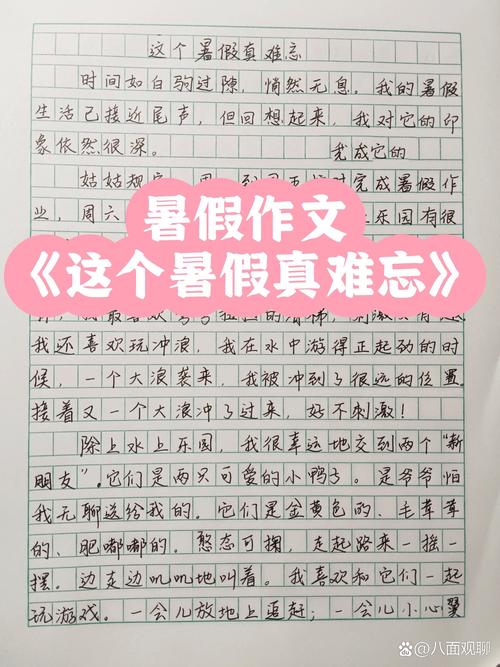 这个暑假真难忘
时间如白驹过隙，悄然无息。我的暑假
生活已接近尾声，但回想起来，我对它的印
象依然很深。
完成它的
姑姑规定
完成暑假作
业，周六
乐园有很
暑假作文
《这个暑假真难忘》
我还喜欢玩冲浪，我在水中游得正起劲的时
候，一个大浪袭来，我被冲到了很远的位置。
接着又一个大浪冲了过来，好不刺激！
除上水上乐园，我很幸运地交到两个“新
朋友”。它们是两只可爱的小鸭子。是爷爷怕
我无聊送给我的。它们是金黄色的、毛茸茸
的、肥嘟嘟的。憨态可掬，走起路来一摇一
摆。边走边叽叽地叫着。我喜欢和它们一起
玩游戏。一会儿放地上追赶；一会儿小心翼
八面观聊